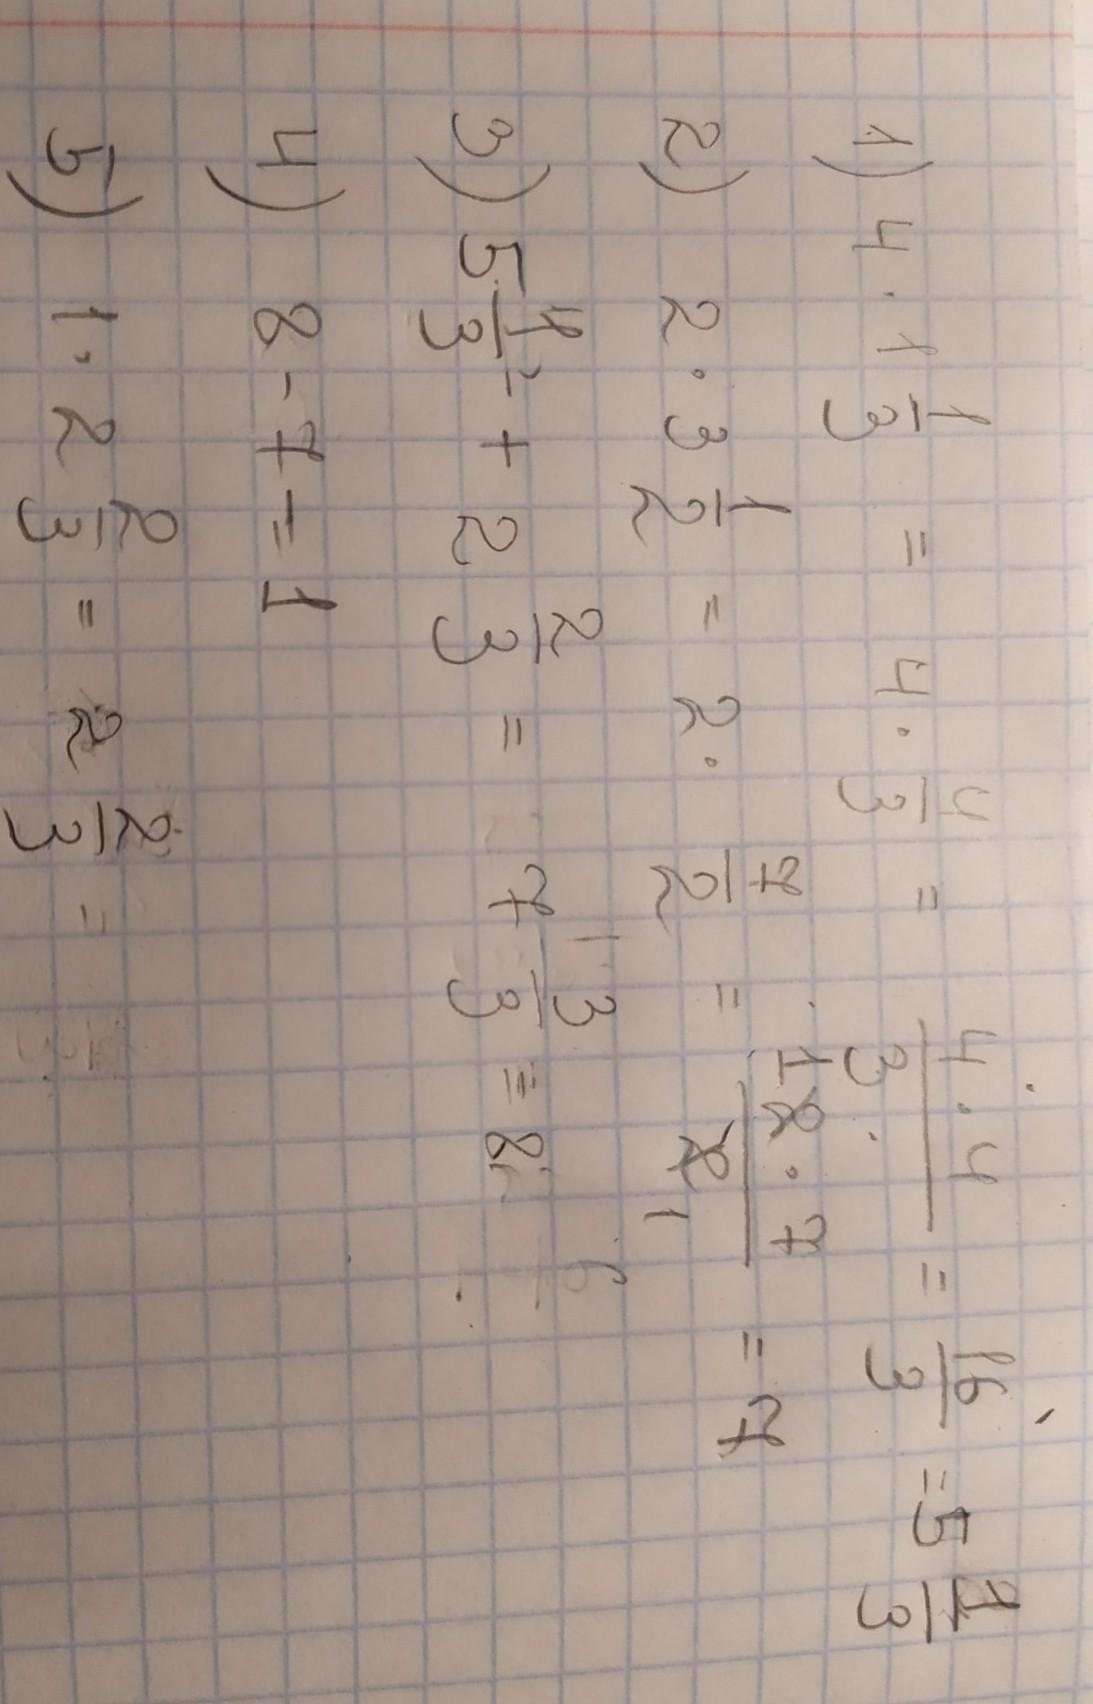 1) 4 · 1 1/3 = 4 · 4/3 = 4 · 4/3 = 16/3 = 5 1/3
2) 2 · 3 1/2 = 2 · 7/2 = 2 · 7/2 = 7
3) 5 1/3 + 2 2/3 = 7 3/3 = 8
4) 8 - 7 = 1
5) 1 · 2 2/3 = 2 2/3 =